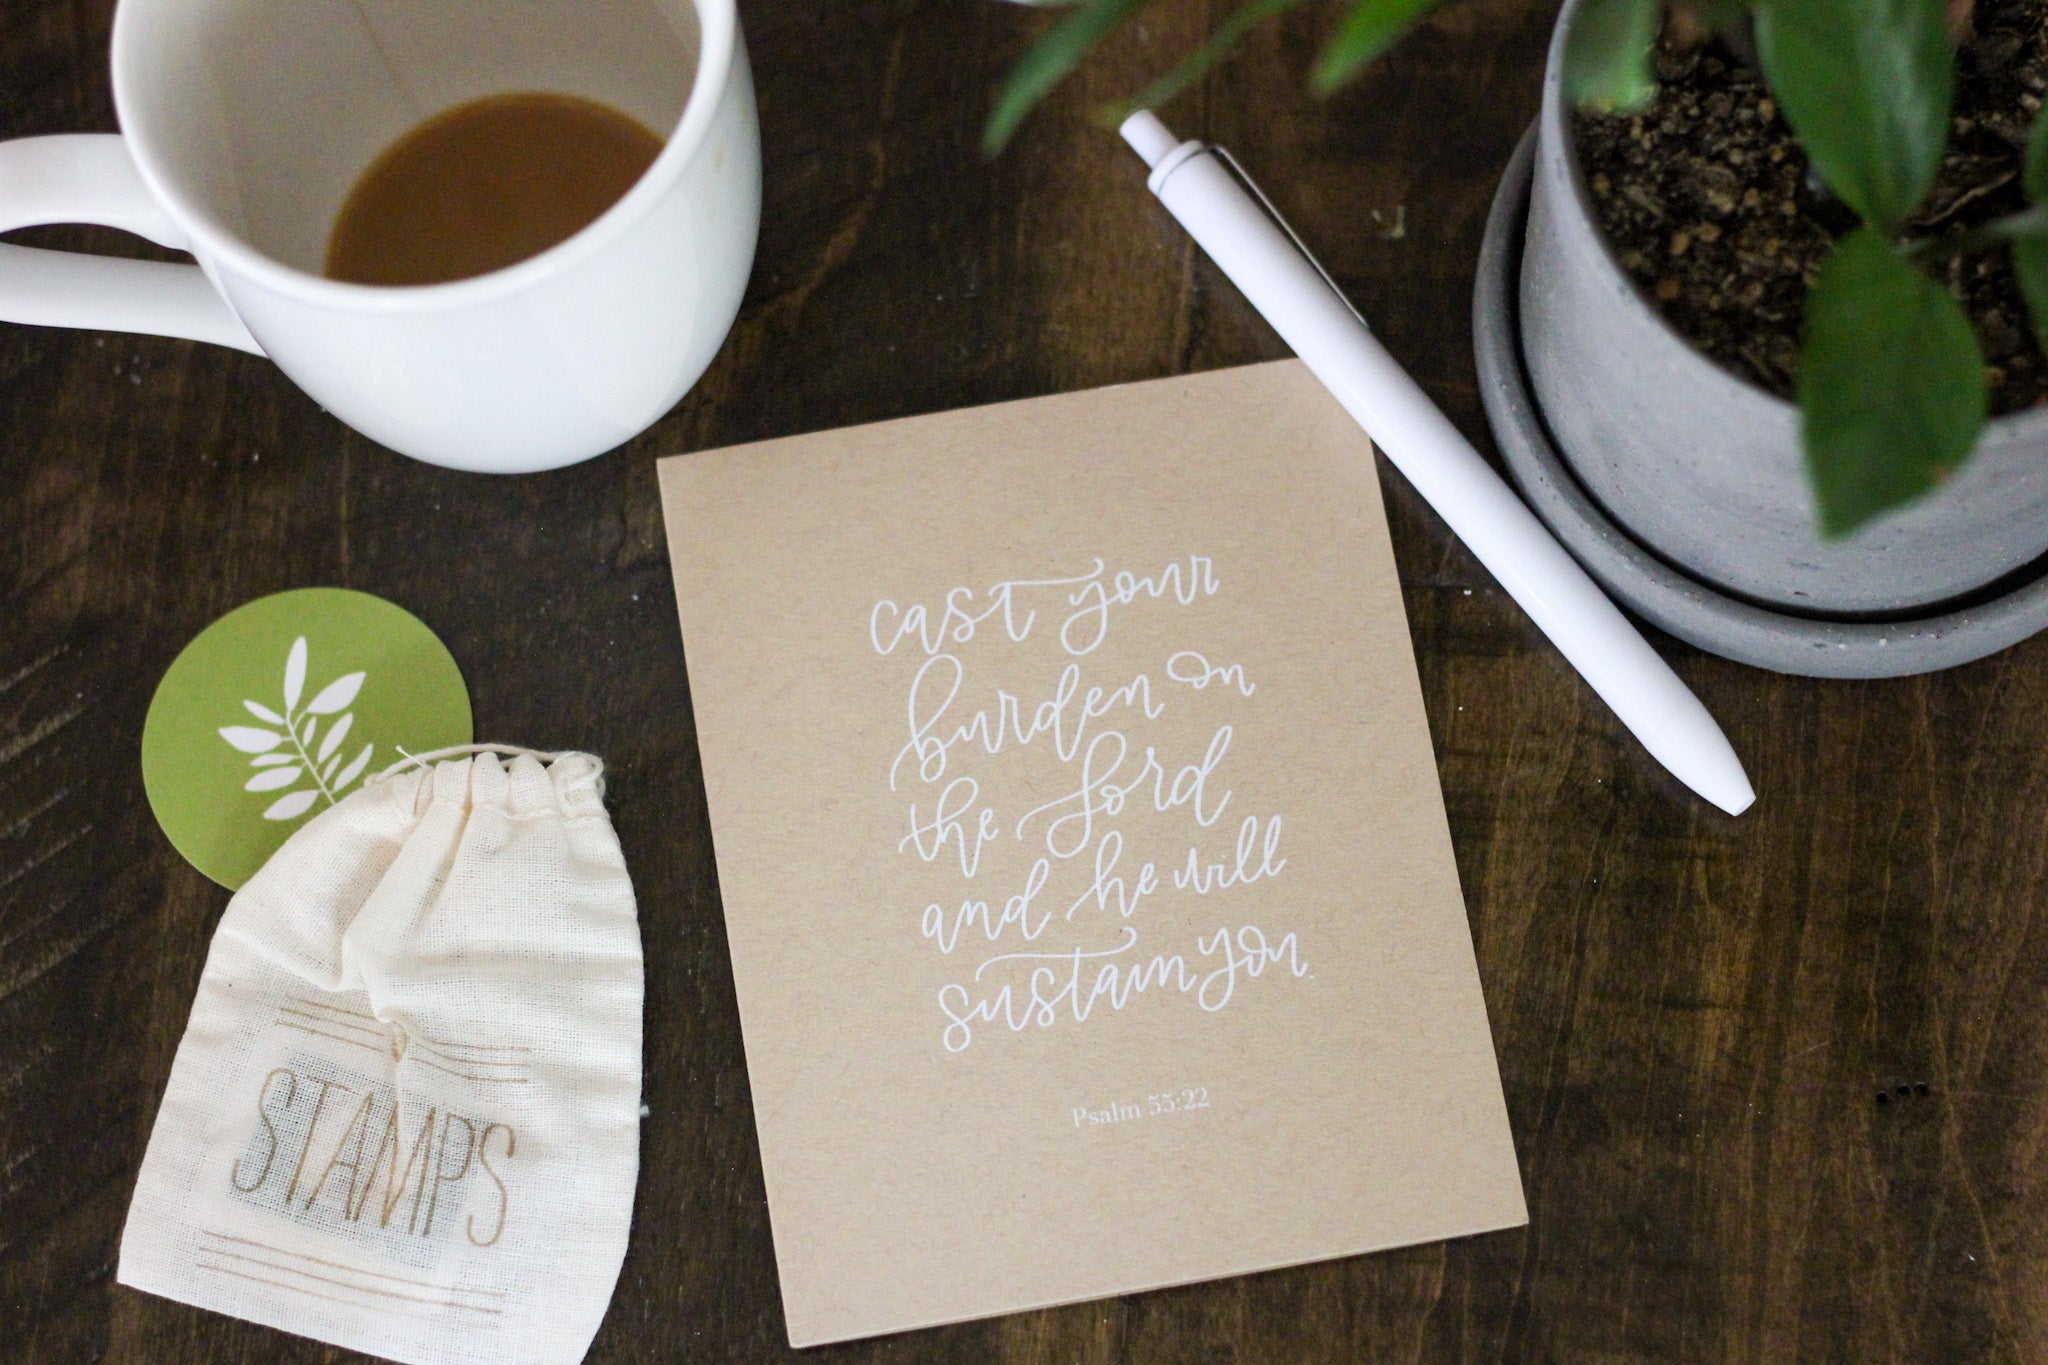 cast your
burden on
the Lord
and he will
sustain you.
Psalm 55:22
STAMPS